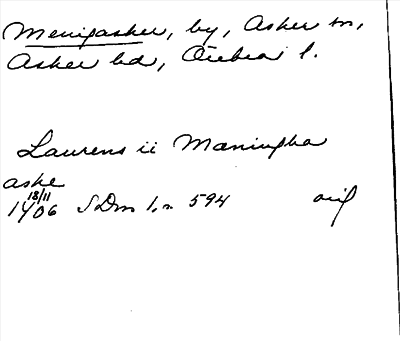 Menigasker, by, Asker sn,
Asker hd, Örebro l.
Laurens ii Maningha
aske
18/11
1406 SDns 1, n 594 orig